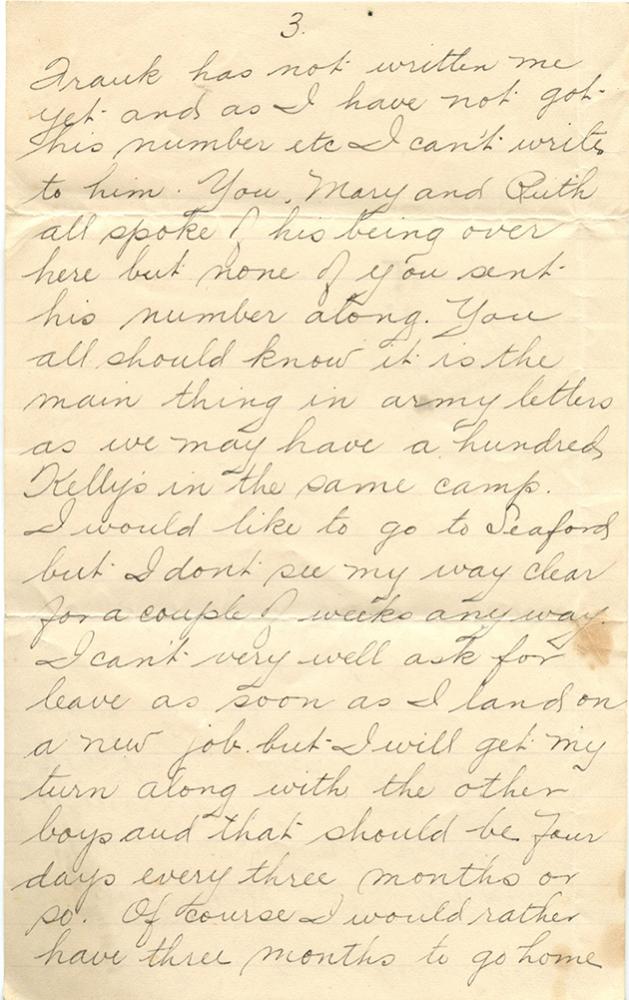 3.
Frank has not written me
yet and as I have not got
his number etc I can't write
to him. You, Mary and Ruth
all spoke of his being over
here but none of you sent
his number along. You
all should know it is the
main thing in army letters
as we may have a hundred
Kelly's in the same camp.
I would like to go to Seaford
but I dont see my way clear
for a couple of weeks any way.
I can't very well ask for
leave as soon as I land on
a new job. but I will get my
turn along with the other
boys and that should be four
days every three months or
so. Of course I would rather
have three months to go home